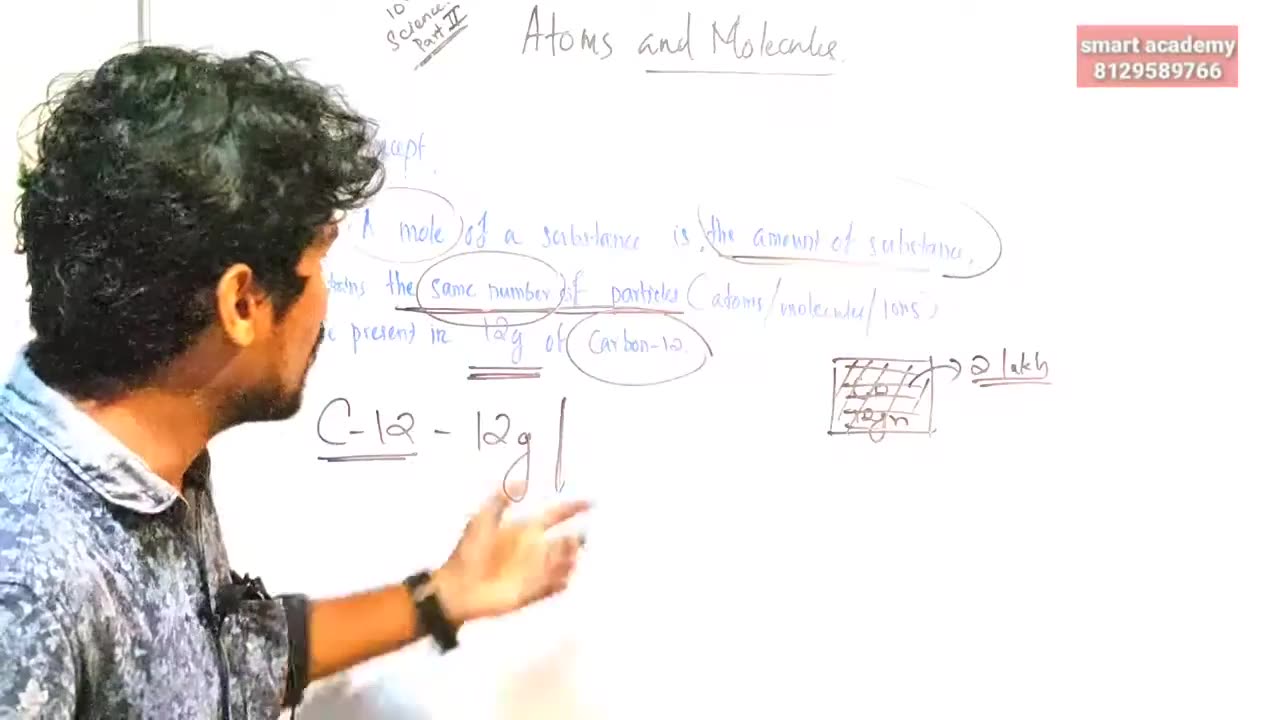 10
Science
Part II
Atoms and Molecules
smart academy
8129589766
cept
A mole of a substance is the amount of substance,
the same number of particles (atoms/molecules/ions)
present in 12g of Carbon-12.
2 lakh
C-12 - 12g |